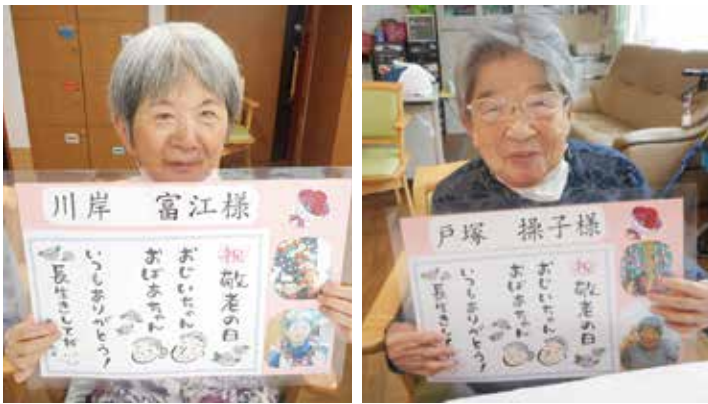 川岸 富江様
祝 敬老の日
おじいちゃん
おばあちゃん
いつもありがとう!
長生きしてね
戸塚 操子様
祝 敬老の日
おじいちゃん
おばあちゃん
いつもありがとう!
長生きしてね